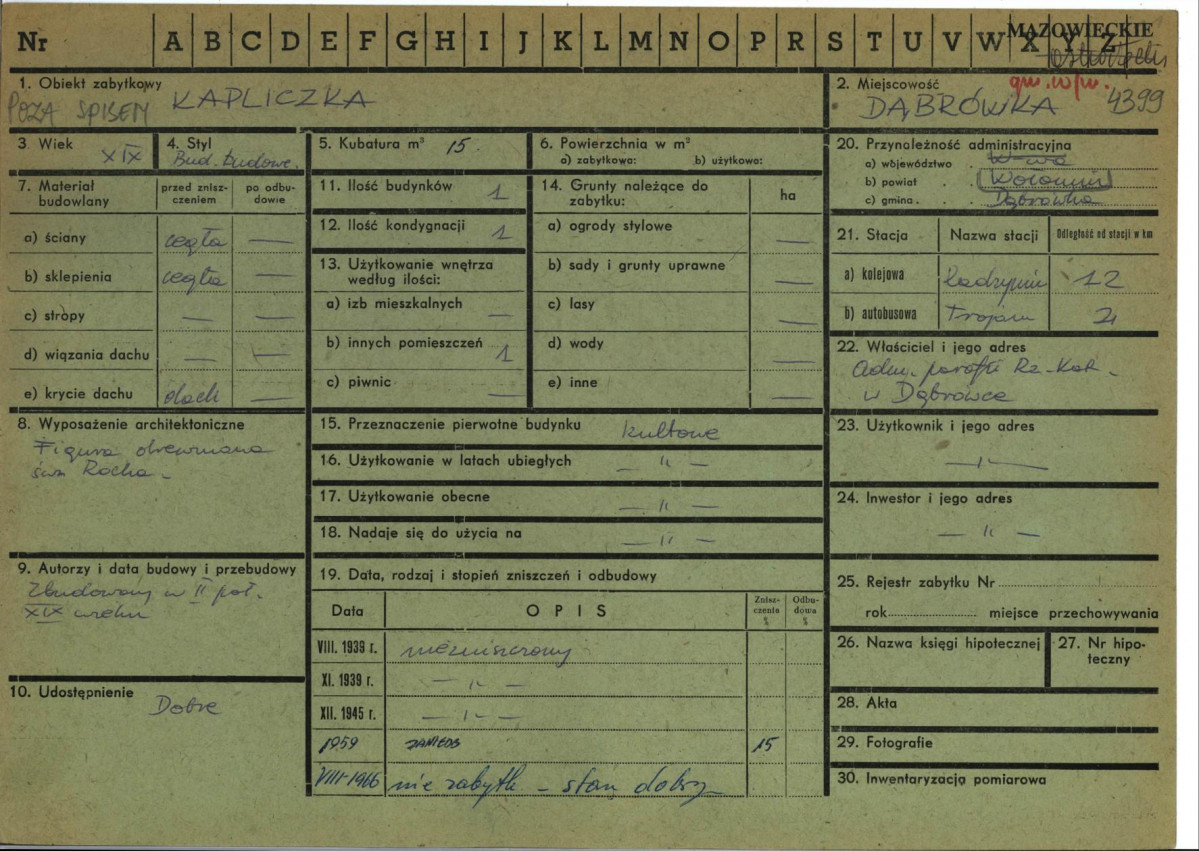 MAZOWIECKIE
Nr A B C D E F G H I J K L M N O P R S T U V W X Y Z
1. Obiekt zabytkowy
POZA SPISEM KAPLICZKA
2. Miejscowość
DĄBRÓWKA 4399
3. Wiek
XIX
4. Styl
Bud. budowe.
5. Kubatura m³ 15.
6. Powierzchnia w m²
a) zabytkowa: b) użytkowa:
7. Materiał budowlany
przed zniszczeniem
po odbudowie
a) ściany cegła —
b) sklepienia cegła —
c) stropy — —
d) wiązania dachu — —
e) krycie dachu dach —
8. Wyposażenie architektoniczne
Figura drewniana
św. Rocha -
9. Autorzy i data budowy i przebudowy
Zbudowany w II poł.
XIX wieku
10. Udostępnienie
Dobre
11. Ilość budynków 1
12. Ilość kondygnacji 1
13. Użytkowanie wnętrza
według ilości:
a) izb mieszkalnych —
b) innych pomieszczeń 1
c) piwnic —
14. Grunty należące do
zabytku: ha
a) ogrody stylowe —
b) sady i grunty uprawne —
c) lasy —
d) wody —
e) inne —
15. Przeznaczenie pierwotne budynku kultowe
16. Użytkowanie w latach ubiegłych — " —
17. Użytkowanie obecne — " —
18. Nadaje się do użycia na — " —
19. Data, rodzaj i stopień zniszczeń i odbudowy
Data OPIS Zniszczenie % Odbudowa %
VIII. 1939 r. niezniszczony
XI. 1939 r. — " —
XII. 1945 r. — " —
1959 15
VIII-1966 nie zabytk - stan dobry
20. Przynależność administracyjna
a) województwo . W-wa
b) powiat . Wołomin
c) gmina . . Dąbrówka
21. Stacja Nazwa stacji Odległość od stacji w km
a) kolejowa Radzymin 12
b) autobusowa Trojany 2
22. Właściciel i jego adres
Adm. parafii Rz-Kat-
w Dąbrówce
23. Użytkownik i jego adres
— " —
24. Inwestor i jego adres
— " —
25. Rejestr zabytku Nr
rok miejsce przechowywania
26. Nazwa księgi hipotecznej
27. Nr hipoteczny
28. Akta
29. Fotografie
30. Inwentaryzacja pomiarowa